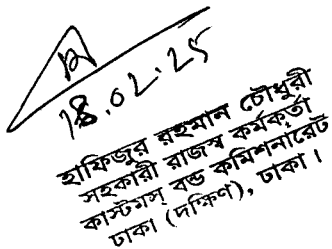 18.02.25
হাফিজুর রহমান চৌধুরী
সহকারী রাজস্ব কর্মকর্তা
কাস্টমস্ বন্ড কমিশনারেট
ঢাকা (দক্ষিণ), ঢাকা।